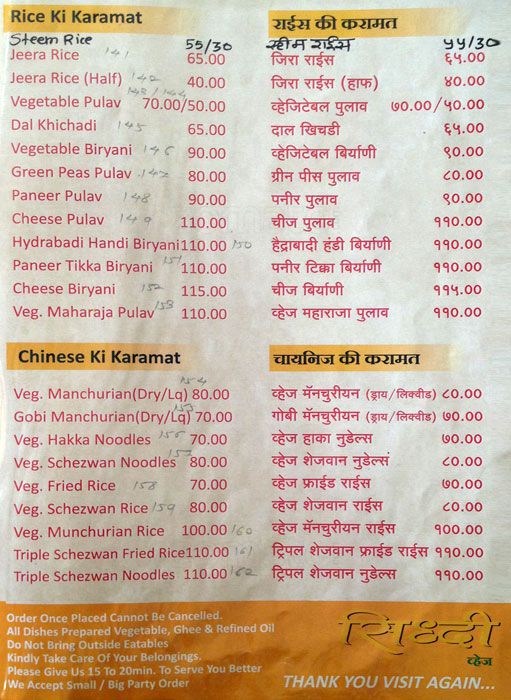 Rice Ki Karamat
Steem Rice 55/30
Jeera Rice 141 65.00
Jeera Rice (Half) 142 40.00
Vegetable Pulav 143/144 70.00/50.00
Dal Khichadi 145 65.00
Vegetable Biryani 146 90.00
Green Peas Pulav 147 80.00
Paneer Pulav 148 90.00
Cheese Pulav 149 110.00
Hydrabadi Handi Biryani 110.00 150
Paneer Tikka Biryani 151 110.00
Cheese Biryani 152 115.00
Veg. Maharaja Pulav 153 110.00
Chinese Ki Karamat
Veg. Manchurian(Dry/Lq) 154 80.00
Gobi Manchurian(Dry/Lq) 155 70.00
Veg. Hakka Noodles 156 70.00
Veg. Schezwan Noodles 157 80.00
Veg. Fried Rice 158 70.00
Veg. Schezwan Rice 159 80.00
Veg. Munchurian Rice 100.00 160
Triple Schezwan Fried Rice 110.00 161
Triple Schezwan Noodles 110.00 162
राईस की करामत
स्टीम राईस ५५/३०
जिरा राईस ६५.००
जिरा राईस (हाफ) ४०.००
व्हेजिटेबल पुलाव ७०.००/५०.००
दाल खिचडी ६५.००
व्हेजिटेबल बिर्याणी ९०.००
ग्रीन पीस पुलाव ८०.००
पनीर पुलाव ९०.००
चीज पुलाव ११०.००
हैद्राबादी हंडी बिर्याणी ११०.००
पनीर टिक्का बिर्याणी ११०.००
चीज बिर्याणी ११५.००
व्हेज महाराजा पुलाव ११०.००
चायनिज की करामत
व्हेज मॅनचुरीयन (ड्राय/लिक्वीड) ८०.००
गोबी मॅनचुरीयन (ड्राय/लिक्वीड) ७०.००
व्हेज हाका नुडेल्स ७०.००
व्हेज शेजवान नुडेल्सं ८०.००
व्हेज फ्राईड राईस ७०.००
व्हेज शेजवान राईस ८०.००
व्हेज मॅनचुरीयन राईस १००.००
ट्रिपल शेजवान फ्राईड राईस ११०.००
ट्रिपल शेजवान नुडेल्स ११०.००
Order Once Placed Cannot Be Cancelled.
All Dishes Prepared Vegetable, Ghee & Refined Oil
Do Not Bring Outside Eatables
Kindly Take Care Of Your Belongings.
Please Give Us 15 To 20min. To Serve You Better
We Accept Small / Big Party Order
सिध्दी
व्हेज
THANK YOU VISIT AGAIN...